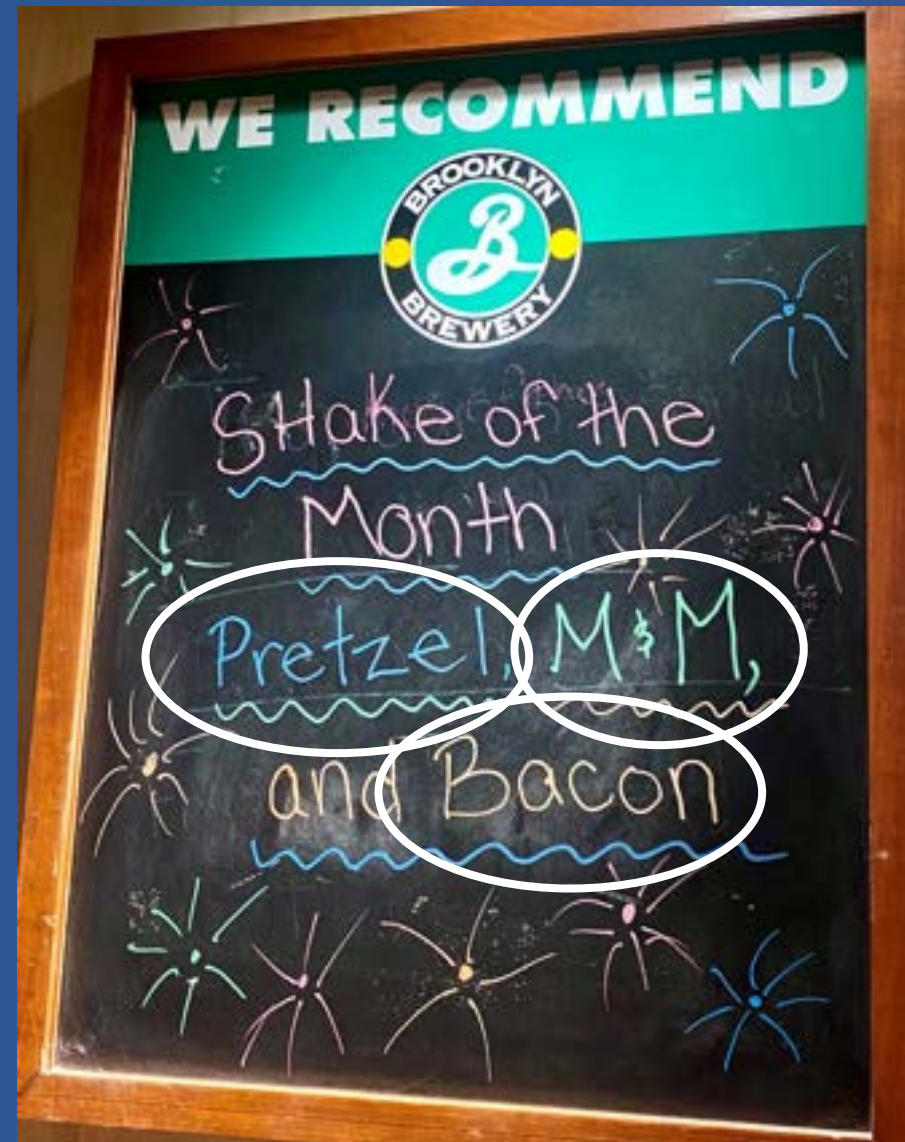 WE RECOMMEND
BROOKLYN
B
BREWERY
SHake of the
Month
Pretzel, M & M,
and Bacon